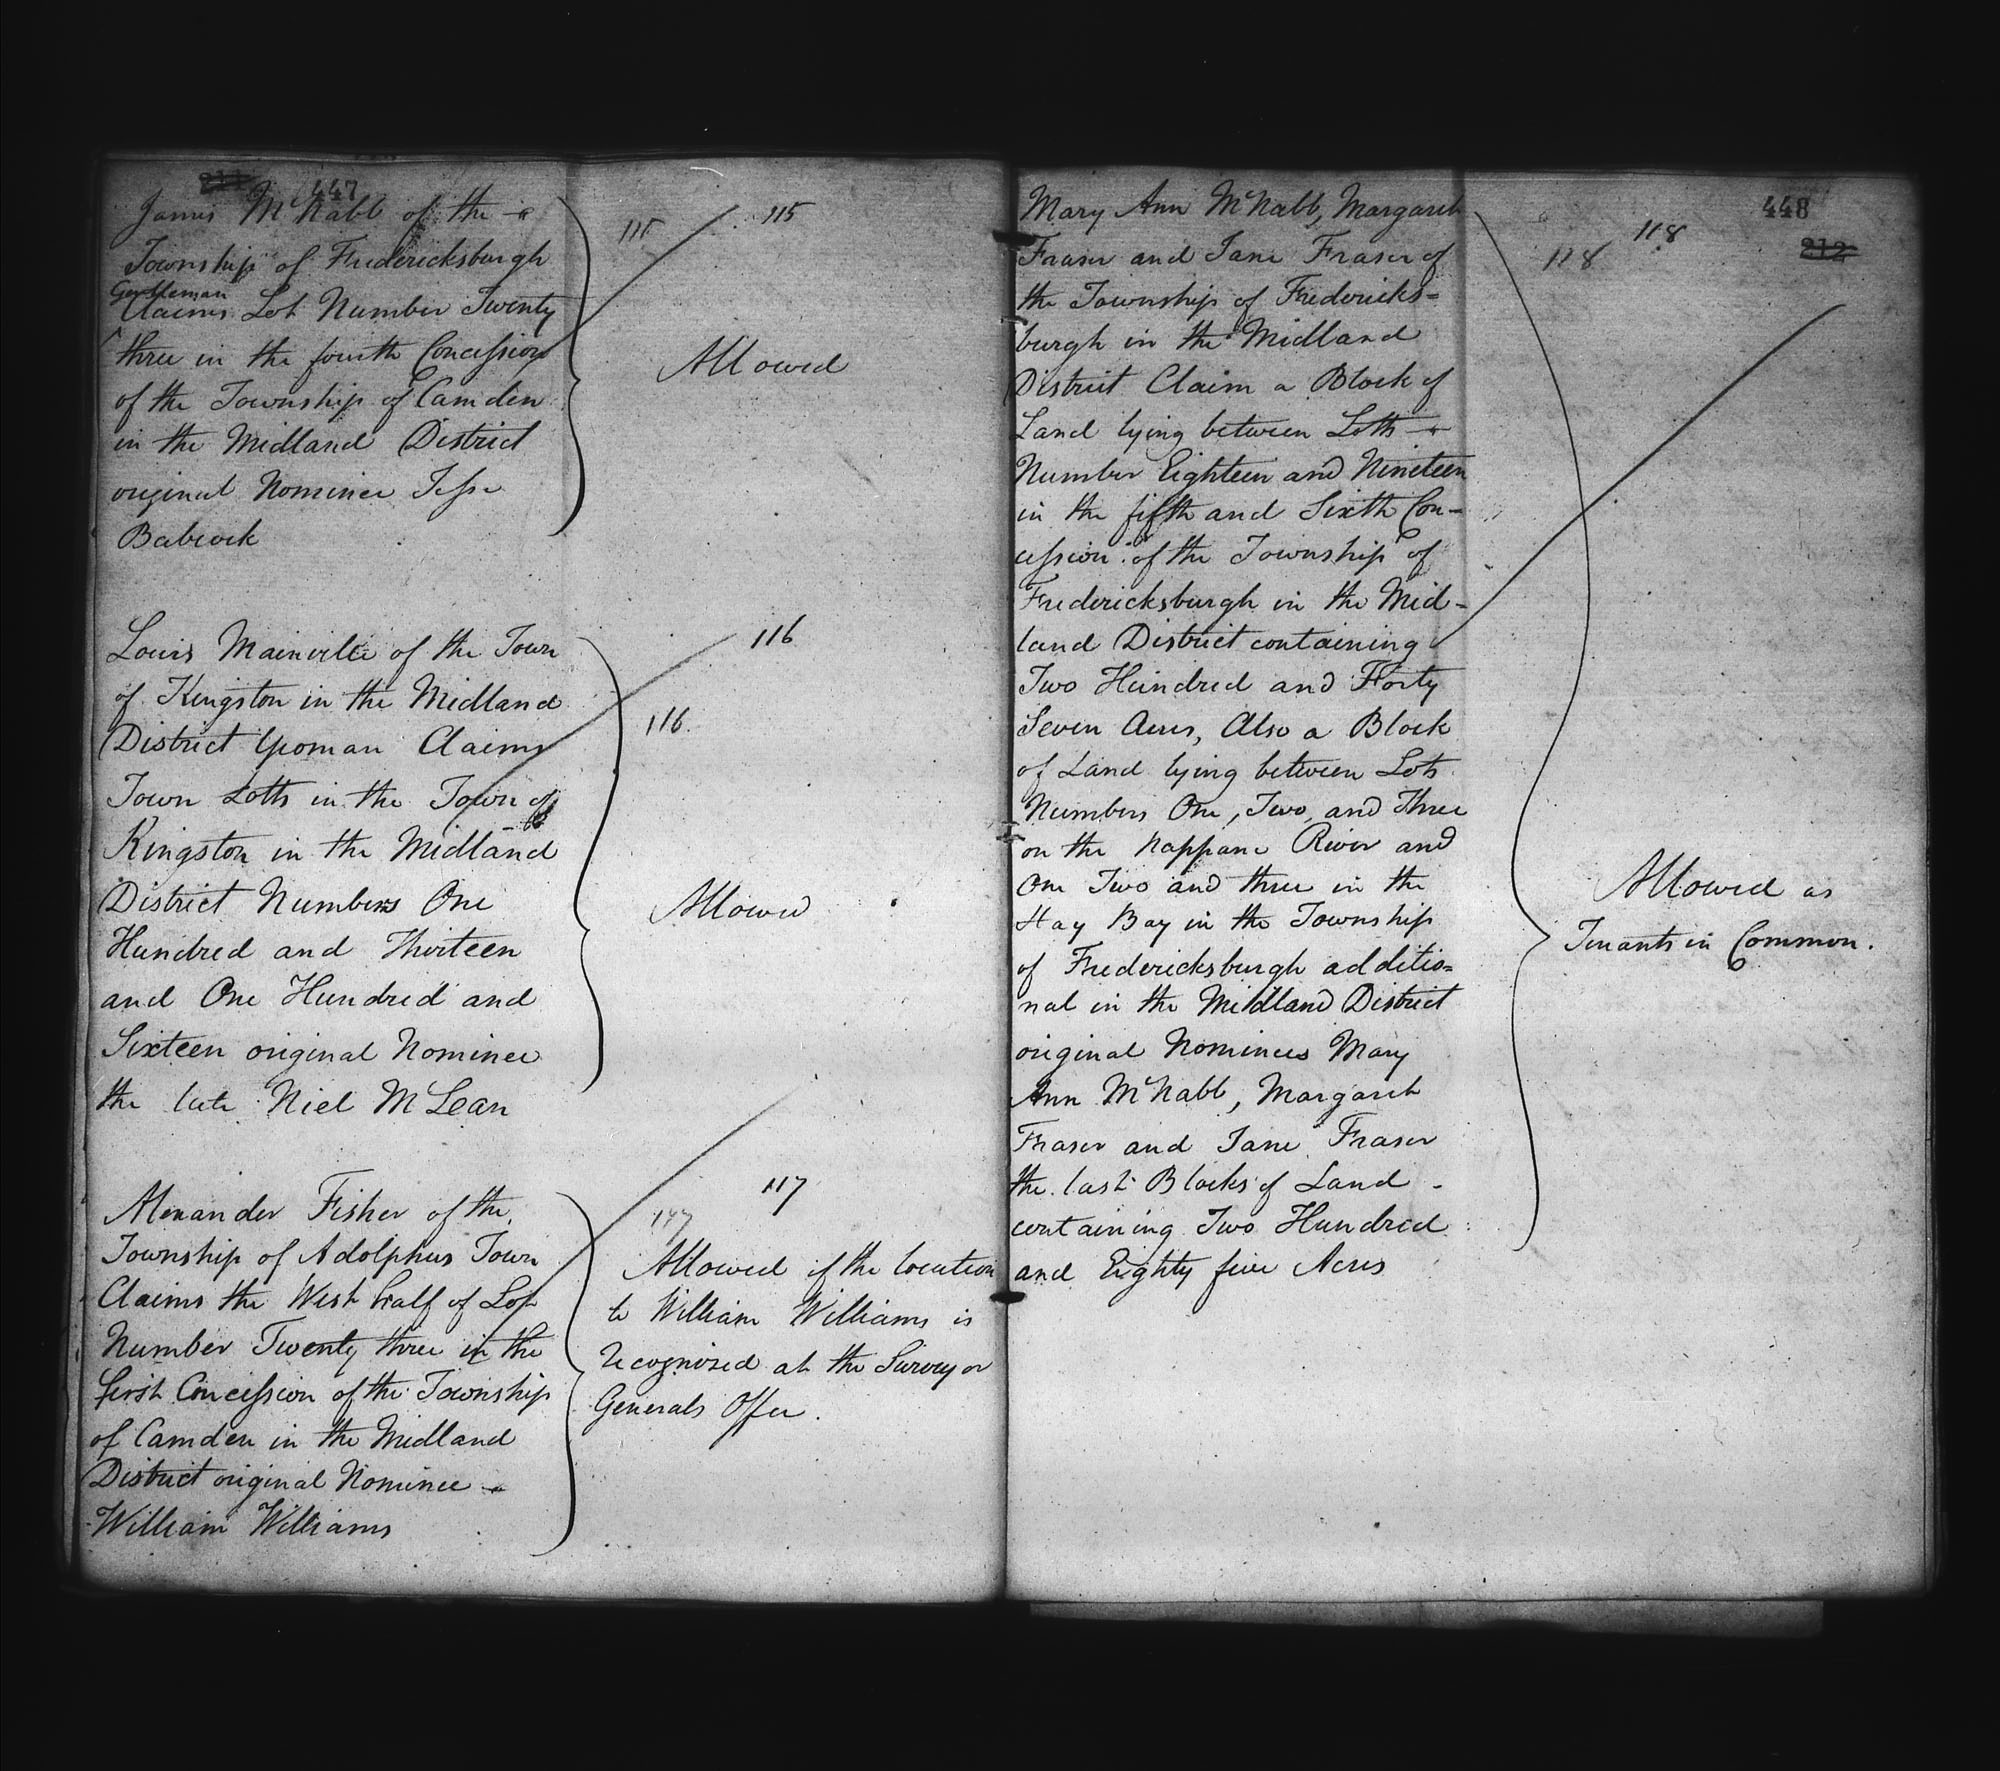 211 447
James McNabb of the
115 115
Township of Fredericksburgh
Gentleman
Claims Lot Number Twenty
three in the fourth Concession
Allowed
of the Township of Camden
in the Midland District
original Nominee Jesse
Babcock
Louis Mainville of the Town
116
of Kingston in the Midland
116.
District Yeoman Claims
Town Lotts in the Town of
Kingston in the Midland
District Numbers One
Allowed
Hundred and Thirteen
and One Hundred and
Sixteen original Nominee
the late Niel McLean
Alexander Fisher of the
117
117
Township of Adolphus Town
Claims the West half of Lot
Number Twenty three in the
first Concession of the Township
of Camden in the Midland
District original Nominee
William Williams
Allowed if the location
to William Williams is
recognized at the Surveyor
Generals Office.
448
212
118 118
Mary Ann McNabb, Margaret
Fraser and Jane Fraser of
the Township of Fredericks=
burgh in the Midland
District Claim a Block of
Land lying between Lotts
Number Eighteen and Nineteen
in the fifth and Sixth Con-
cession of the Township of
Fredericksburgh in the Mid-
land District containing
Two Hundred and Forty
Seven Acres, Also a Block
of Land lying between Lots
Numbers One, Two, and Three
on the Nappane River and
One Two and three in the
Hay Bay in the Township
of Fredericksburgh additio=
nal in the Midland District
original Nominees Mary
Ann McNabb, Margaret
Fraser and Jane Fraser
the last Blocks of Land -
containing Two Hundred
and Eighty five Acres
Allowed as
Tenants in Common.